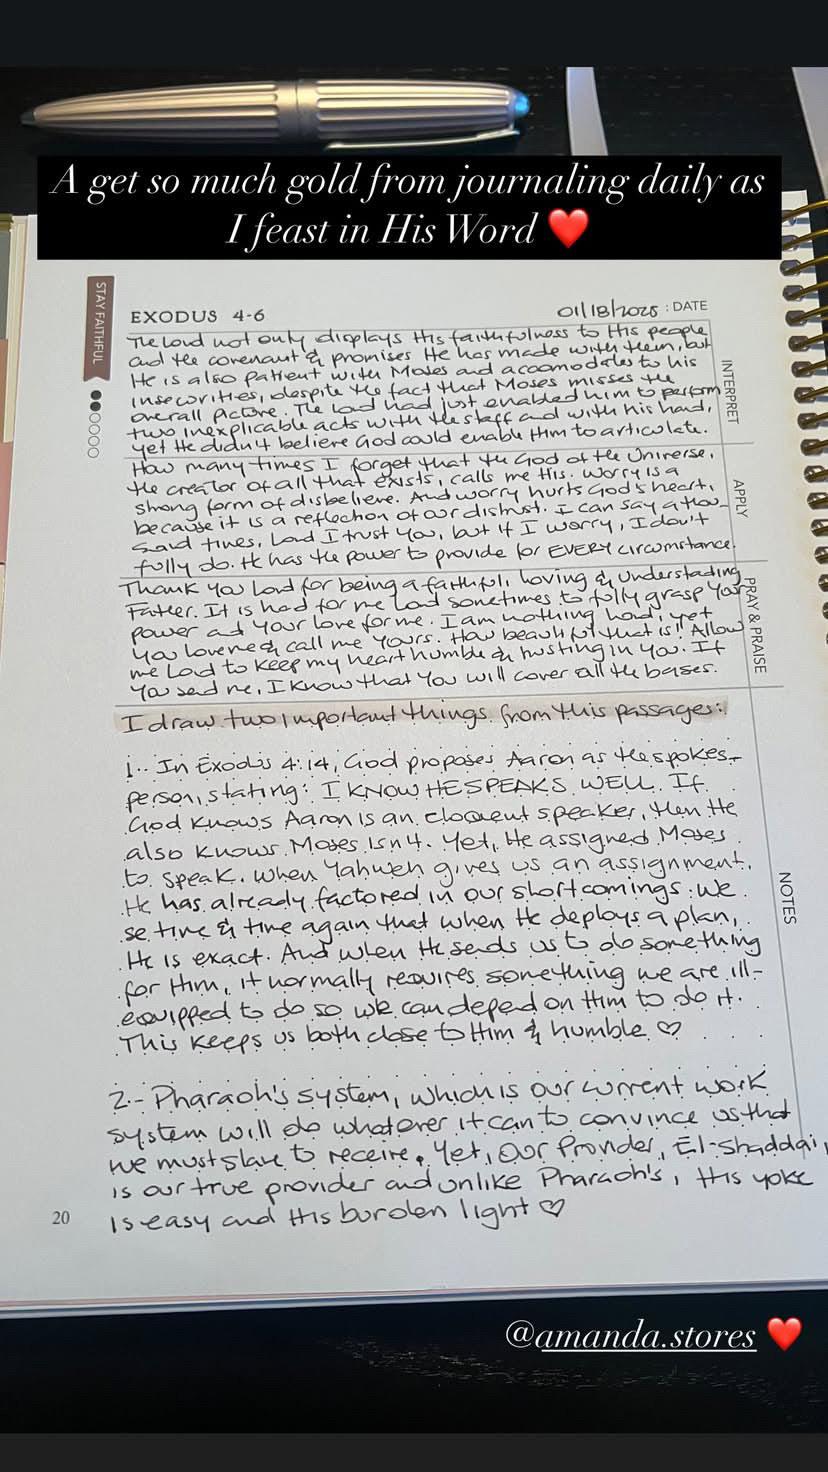 A get so much gold from journaling daily as
I feast in His Word ❤️
STAY FAITHFUL
EXODUS 4-6
01/18/2025 : DATE
The Lord not only displays His faithfulness to His people
and the covenant & promises He has made with them, but
He is also patient with Moses and accomodates to his
insecurities, despite the fact that Moses misses the
overall picture. The Lord had just enabled him to perform
two inexplicable acts with the staff and with his hand,
yet He didn't believe God could enable Him to articulate.
INTERPRET
How many times I forget that the God of the Universe,
the creator of all that exists, calls me His. Worry is a
strong form of disbelieve. And worry hurts God's heart,
because it is a reflection of our distrust. I can say a thou-
said times, Lord I trust You, but if I worry, I don't
fully do. He has the power to provide for EVERY circumstance.
APPLY
Thank You Lord for being a faithful, loving & understading
Father. It is had for me Lord sometimes to fully grasp Your
power ad Your love for me. I am nothing Lord, yet
You loved & call me Yours. How beautiful that is! Allow
me Lord to keep my heart humble & trusting in You. If
You send me, I know that You will cover all the bases.
PRAY & PRAISE
I draw two important things from this passages:
1.- In Exodus 4:14, God proposes Aaron as the spokes-
person, stating: I KNOW HE SPEAKS WELL. If
God knows Aaron is an eloquent speaker, then He
also knows Moses isn't. Yet, He assigned Moses
to speak. When Yahweh gives us an assignment,
He has already factored in our shortcomings. We
se time & time again that when He deploys a plan,
He is exact. And when He sends us to do something
for Him, it normally requires something we are ill-
equipped to do so we can depend on Him to do it.
This keeps us both close to Him & humble ♡
2.- Pharaoh's system, which is our current work
system will do whatever it can to convince us that
we must slave to receive. Yet, Our Provider, El-Shaddai,
is our true provider and unlike Pharaoh's, His yoke
is easy and His burden light ♡
NOTES
20
@amanda.stores ❤️